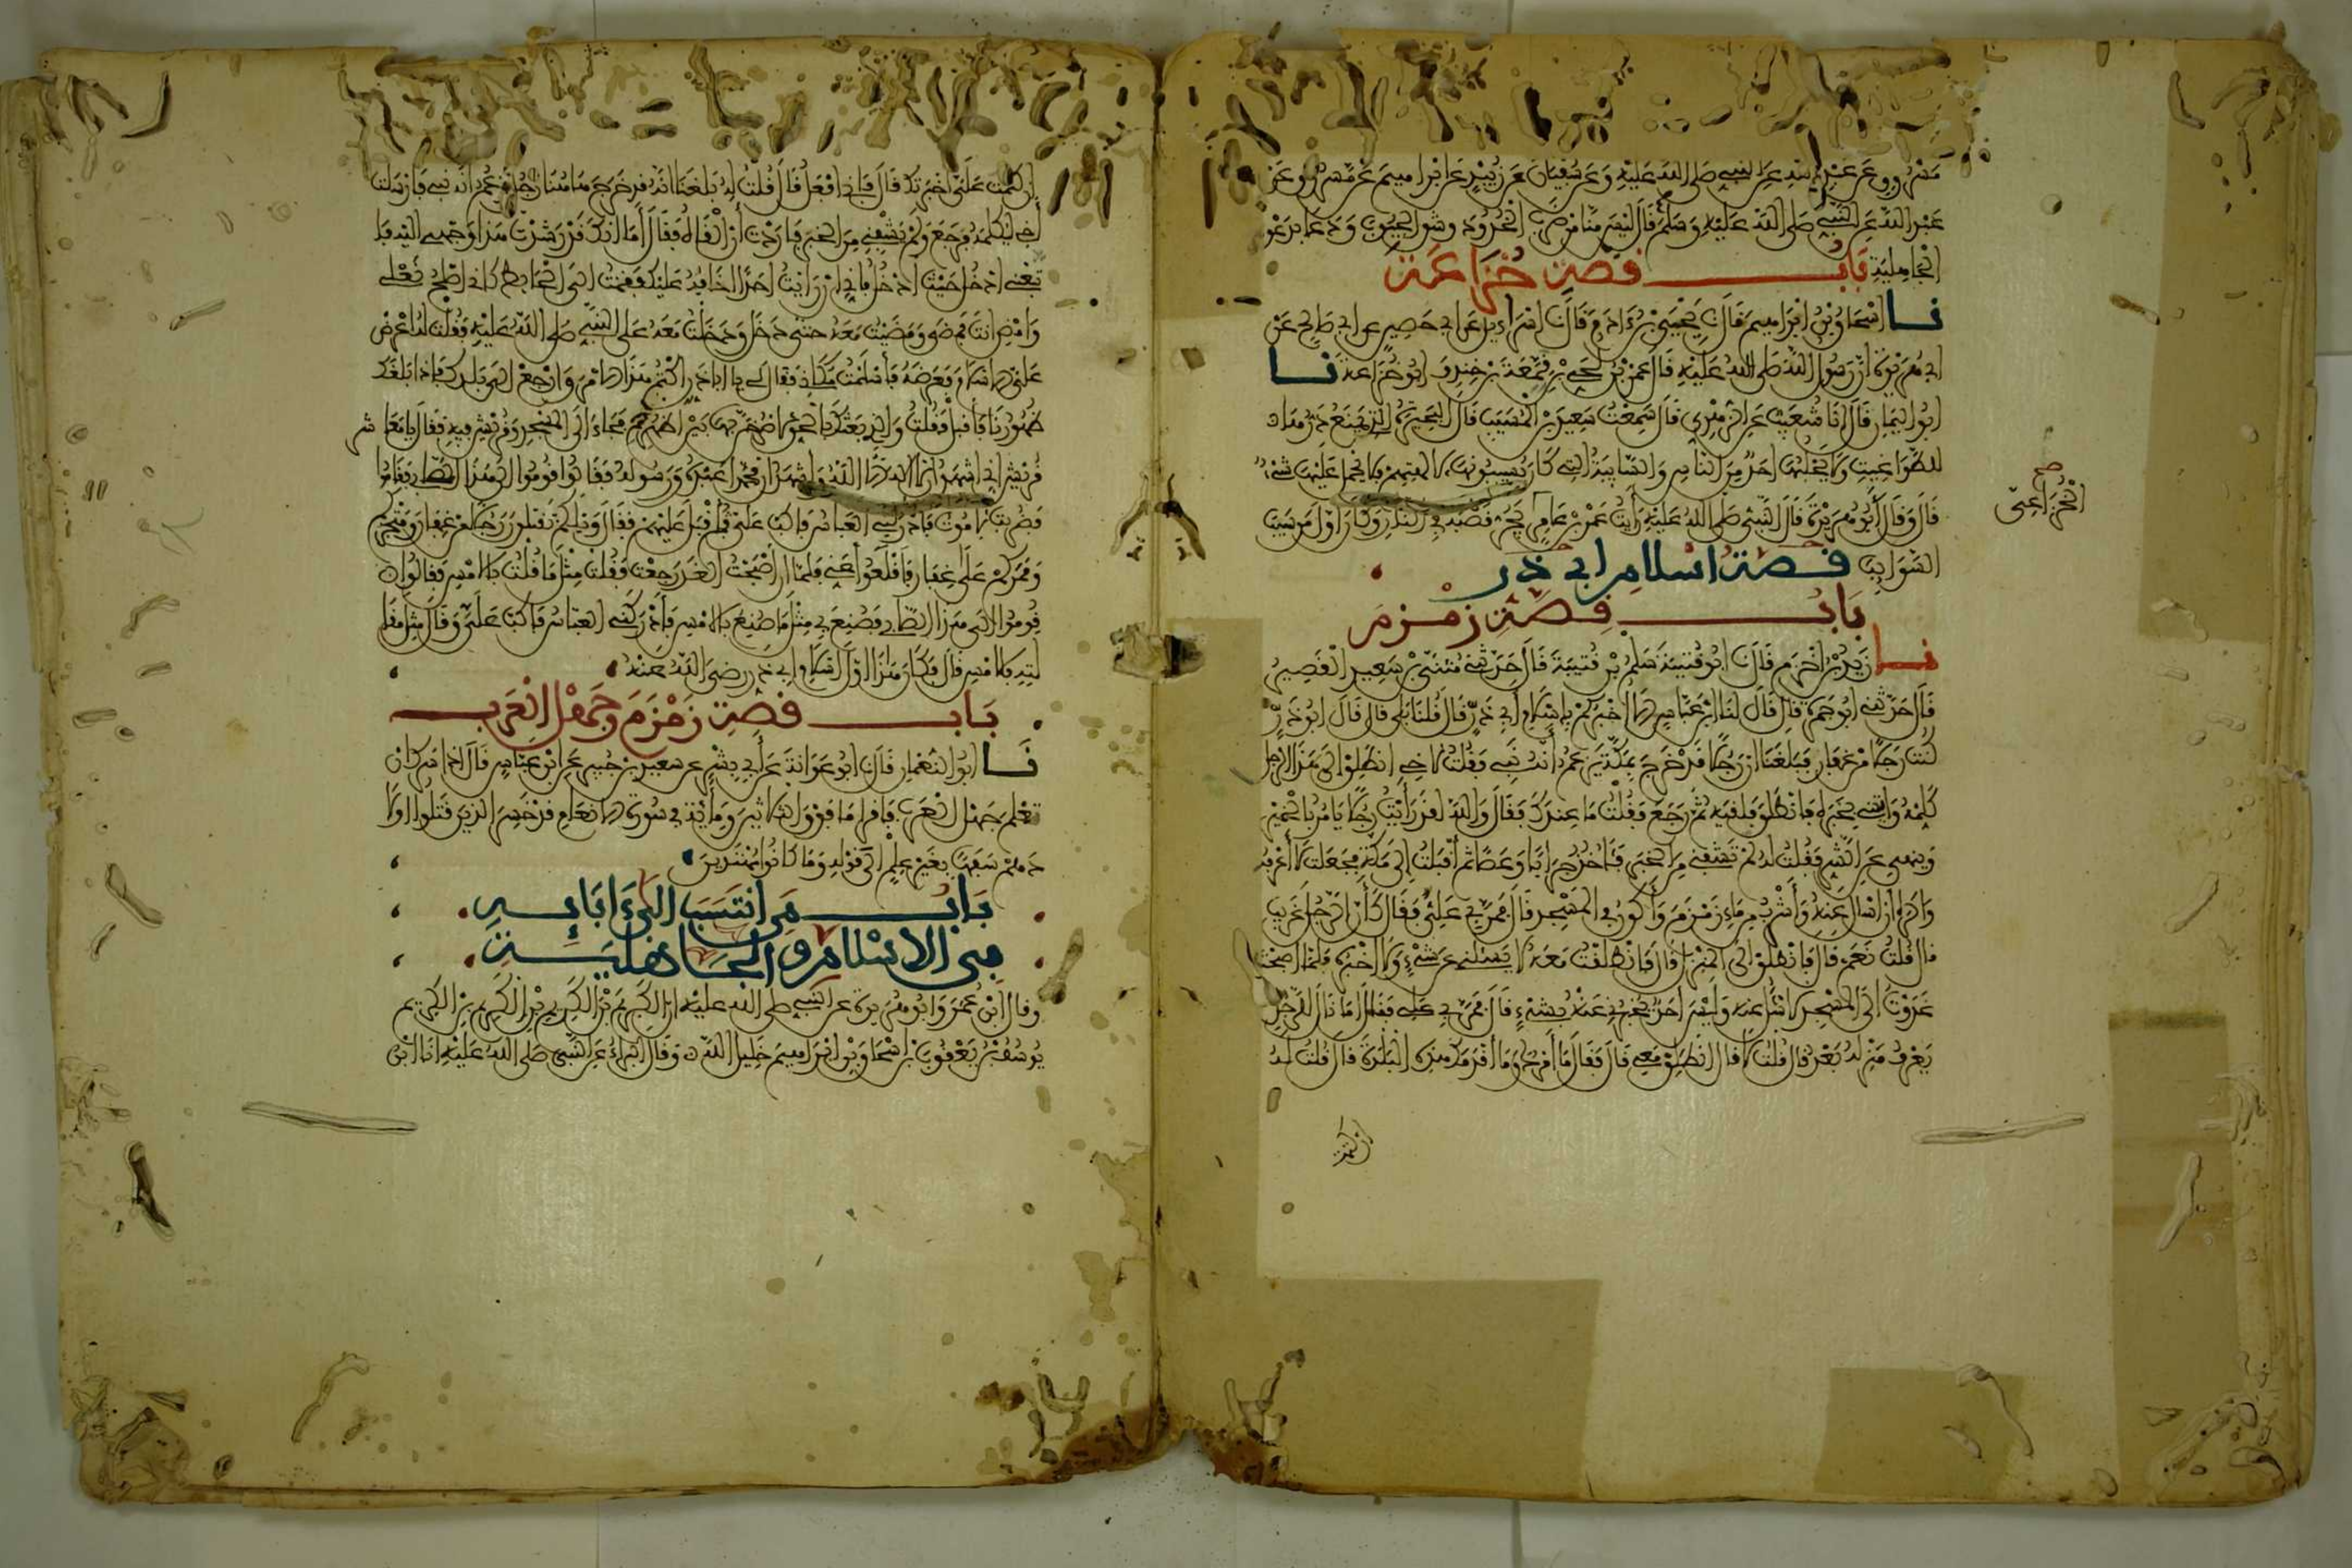 مسروق عن عبد الله عن النبي صلى الله عليه وعن سفيان عن زبيد عن ابراهيم عن مسروق عن
عبد الله عن النبي صلى الله عليه وسلم قال ليس منا من ضرب الخدود وشق الجيوب ودعا بدعوى
الجاهلية باب قصة خزاعة
نا إسحاق بن إبراهيم قال نا يحيى بن ءادم قال نا إسراءيل عن أبي حصين عن أبي صالح عن
أبي هريرة أن رسول الله صلى الله عليه قال عمرو بن لحي بن قمعة بن خندف أبو خزاعة نا
أبو اليمان قال أنا شعيب عن الزهري قال سمعت سعيد بن المسيب قال البحيرة التي يمنع درها
للطواغيت ولا يحلبها أحد من الناس والسايبة التي كانوا يسيبونها لآلهتهم فلا يحمل عليها شيء
قال وقال أبو هريرة قال النبي صلى الله عليه رأيت عمرو بن عامر يجر قصبه في النار وكان أول من سيب
الخزاعي
صح
السوايب قصة اسلام ابي ذر
باب قصة زمزم
نا زيد بن أخزم قال نا أبو قتيبة سلم بن قتيبة قال حدثني مثنى بن سعيد القصير
قال حدثني أبو جمرة قال قال لنا ابن عباس ألا أخبركم بإسلام أبي ذر قال قلنا بلى قال قال أبو ذر
كنت رجلا من غفار فبلغنا أن رجلا قد خرج بمكة يزعم أنه نبي فقلت لأخي انطلق إلى هذا الرجل
كلمه وايتني بخبره فانطلق فلقيه ثم رجع فقلت ما عندك فقال والله لقد رأيت رجلا يأمر بالخير
وينهى عن الشر فقلت له لم تشفني من الخبر فأخذت جرابا وعصا ثم أقبلت إلى مكة فجعلت لا أعرفه
وأكره أن أسأل عنه وأشرب من ماء زمزم وأكون في المسجد قال فمر بي علي فقال كأن الرجل غريب
قال قلت نعم قال فانطلق إلى المنزل قال فانطلقت معه لا يسئلني عن شيء ولا أخبره فلما أصبحت
غدوت إلى المسجد لأسأل عنه وليس أحد يخبرني عنه بشيء قال فمر بي علي فقال أما نال للرجل
يعرف منزله بعد قال قلت لا قال انطلق معي قال فقال ما أمرك وما أقدمك هذه البلدة قال قلت له
إن كتمت
إن كتمت علي أخبرتك قال فإني أفعل قال قلت له بلغنا أنه قد خرج هاهنا رجل يزعم أنه نبي فأرسلت
أخي ليكلمه فرجع ولم يشفني من الخبر فأردت أن ألقاه فقال أما إنك قد رشدت هذا وجهي إليه فا
تبعني ادخل حيث أدخل فإني إن رأيت أحدا أخافه عليك قمت إلى الحايط كأني أصلح نعلي
وامض أنت فمضى ومضيت معه حتى دخل ودخلت معه على النبي صلى الله عليه فقلت له اعرض
علي الإسلام فعرضه فأسلمت مكاني فقال لي يا أبا ذر اكتم هذا الأمر وارجع إلى بلدك فإذا بلغك
ظهورنا فأقبل فقلت والذي بعثك بالحق لأصرخن بها بين أظهرهم فجاء إلى المسجد وقريش فيه فقال يا معاشر
قريش إني أشهد أن لا إله إلا الله وأشهد أن محمدا عبده ورسوله فقالوا قوموا إلى هذا الصابي فقاموا
فضربت لأموت فأدركني العباس فأكب علي ثم أقبل عليهم فقال ويلكم تقتلون رجلا من غفار ومتجركم
وممركم على غفار فأقلعوا عني فلما أن أصبحت الغد رجعت فقلت مثل ما قلت بالأمس فقالوا
قوموا إلى هذا الصابي فصنع بي مثل ما صنع بالأمس فأدركني العباس فأكب علي وقال مثل مقا
لته بالأمس قال فكان هذا أول إسلام أبي ذر رضي الله عنه
باب قصة زمزم وجهل العرب
نا أبو النعمان قال نا أبو عوانة عن أبي بشر عن سعيد بن جبير عن ابن عباس قال إذا سرك أن
تعلم جهل العرب فاقرأ ما فوق الثلاثين ومائة في سورة الأنعام قد خسر الذين قتلوا أولا
دهم سفها بغير علم إلى قوله وما كانوا مهتدين
باب من انتسب الى ءابايه
في الاسلام والجاهلية
وقال ابن عمر وأبو هريرة عن النبي صلى الله عليه إن الكريم بن الكريم بن الكريم بن الكريم
يوسف بن يعقوب بن إسحاق بن إبراهيم خليل الله وقال البراء عن النبي صلى الله عليه أنا ابن